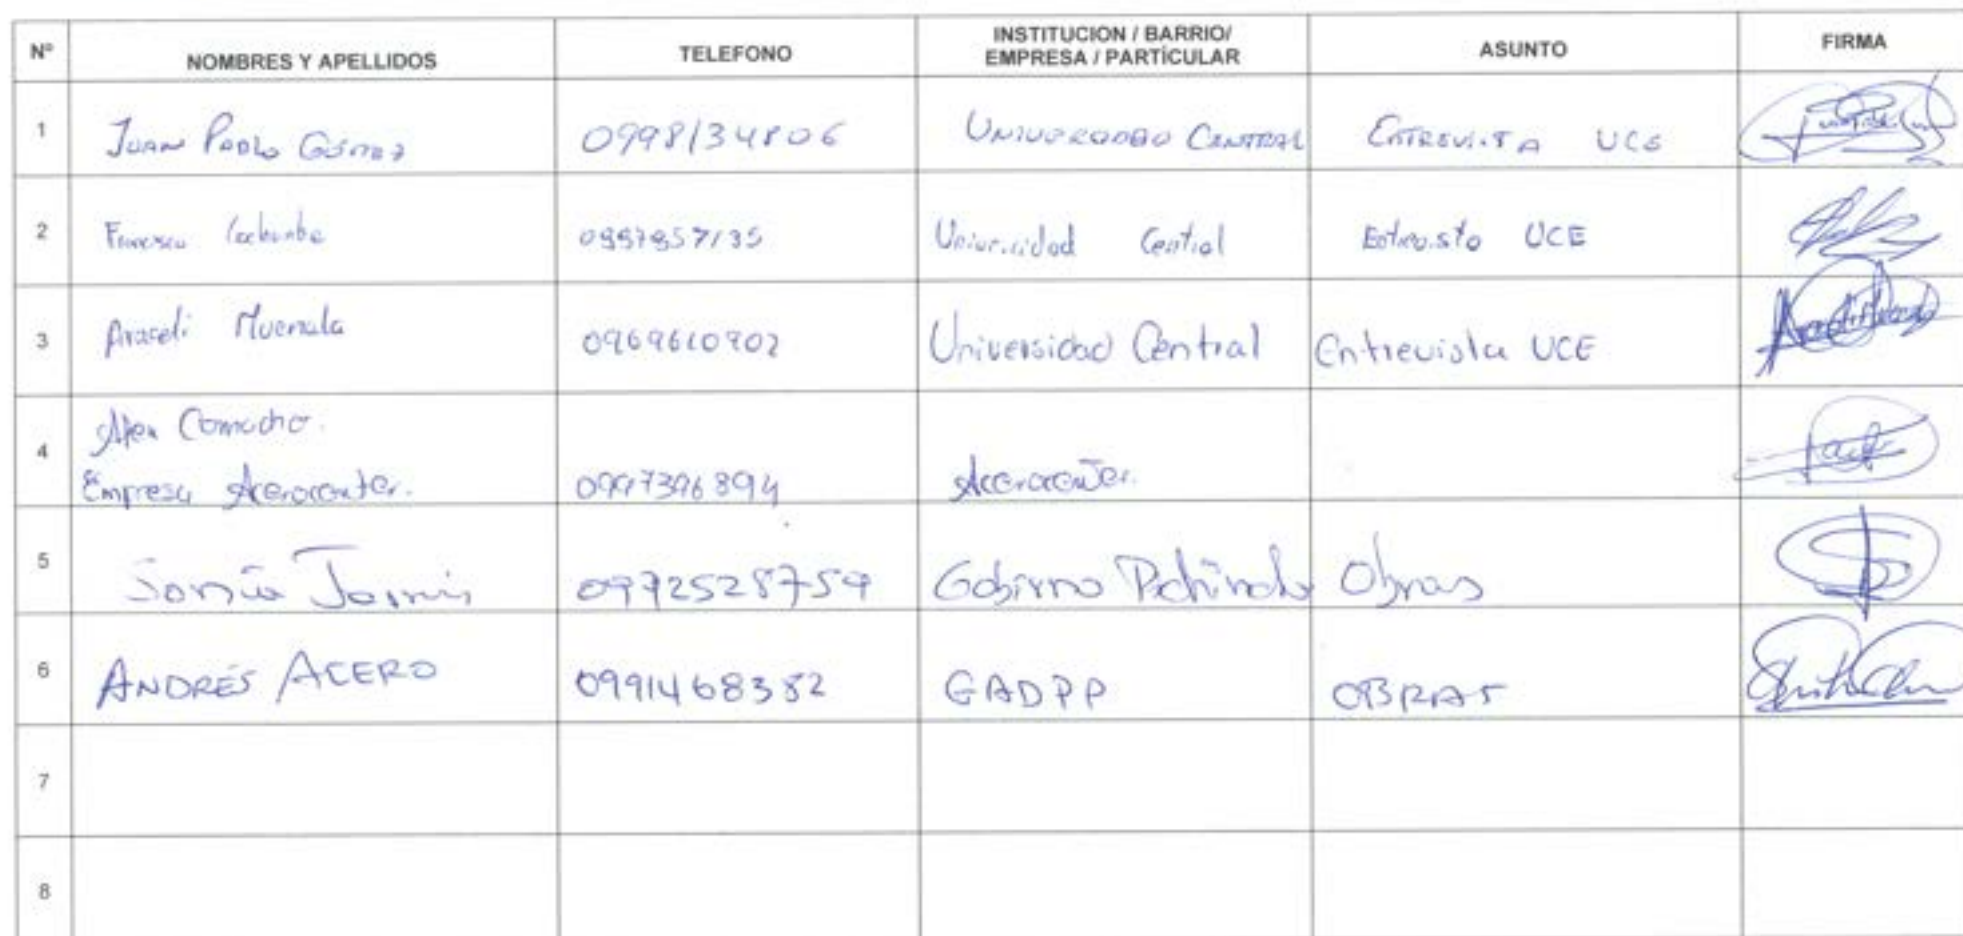 Nº NOMBRES Y APELLIDOS TELEFONO INSTITUCION / BARRIO/ EMPRESA / PARTÍCULAR ASUNTO FIRMA
1 JUAN PABLO GÓMEZ 0998134806 UNIVERSIDAD CENTRAL ENTREVISTA UCE
2 0997957135 Universidad Central Entrevista UCE
3 Araceli Muenala 0969610902 Universidad Central Entrevista UCE
4 Alex Camacho.
Empresa Acerocenter. 0997396894 Acerocenter.
5 Sonia 0972528759 Obras
6 ANDRÉS ACERO 0991468382 GADPP OBRAS
7
8